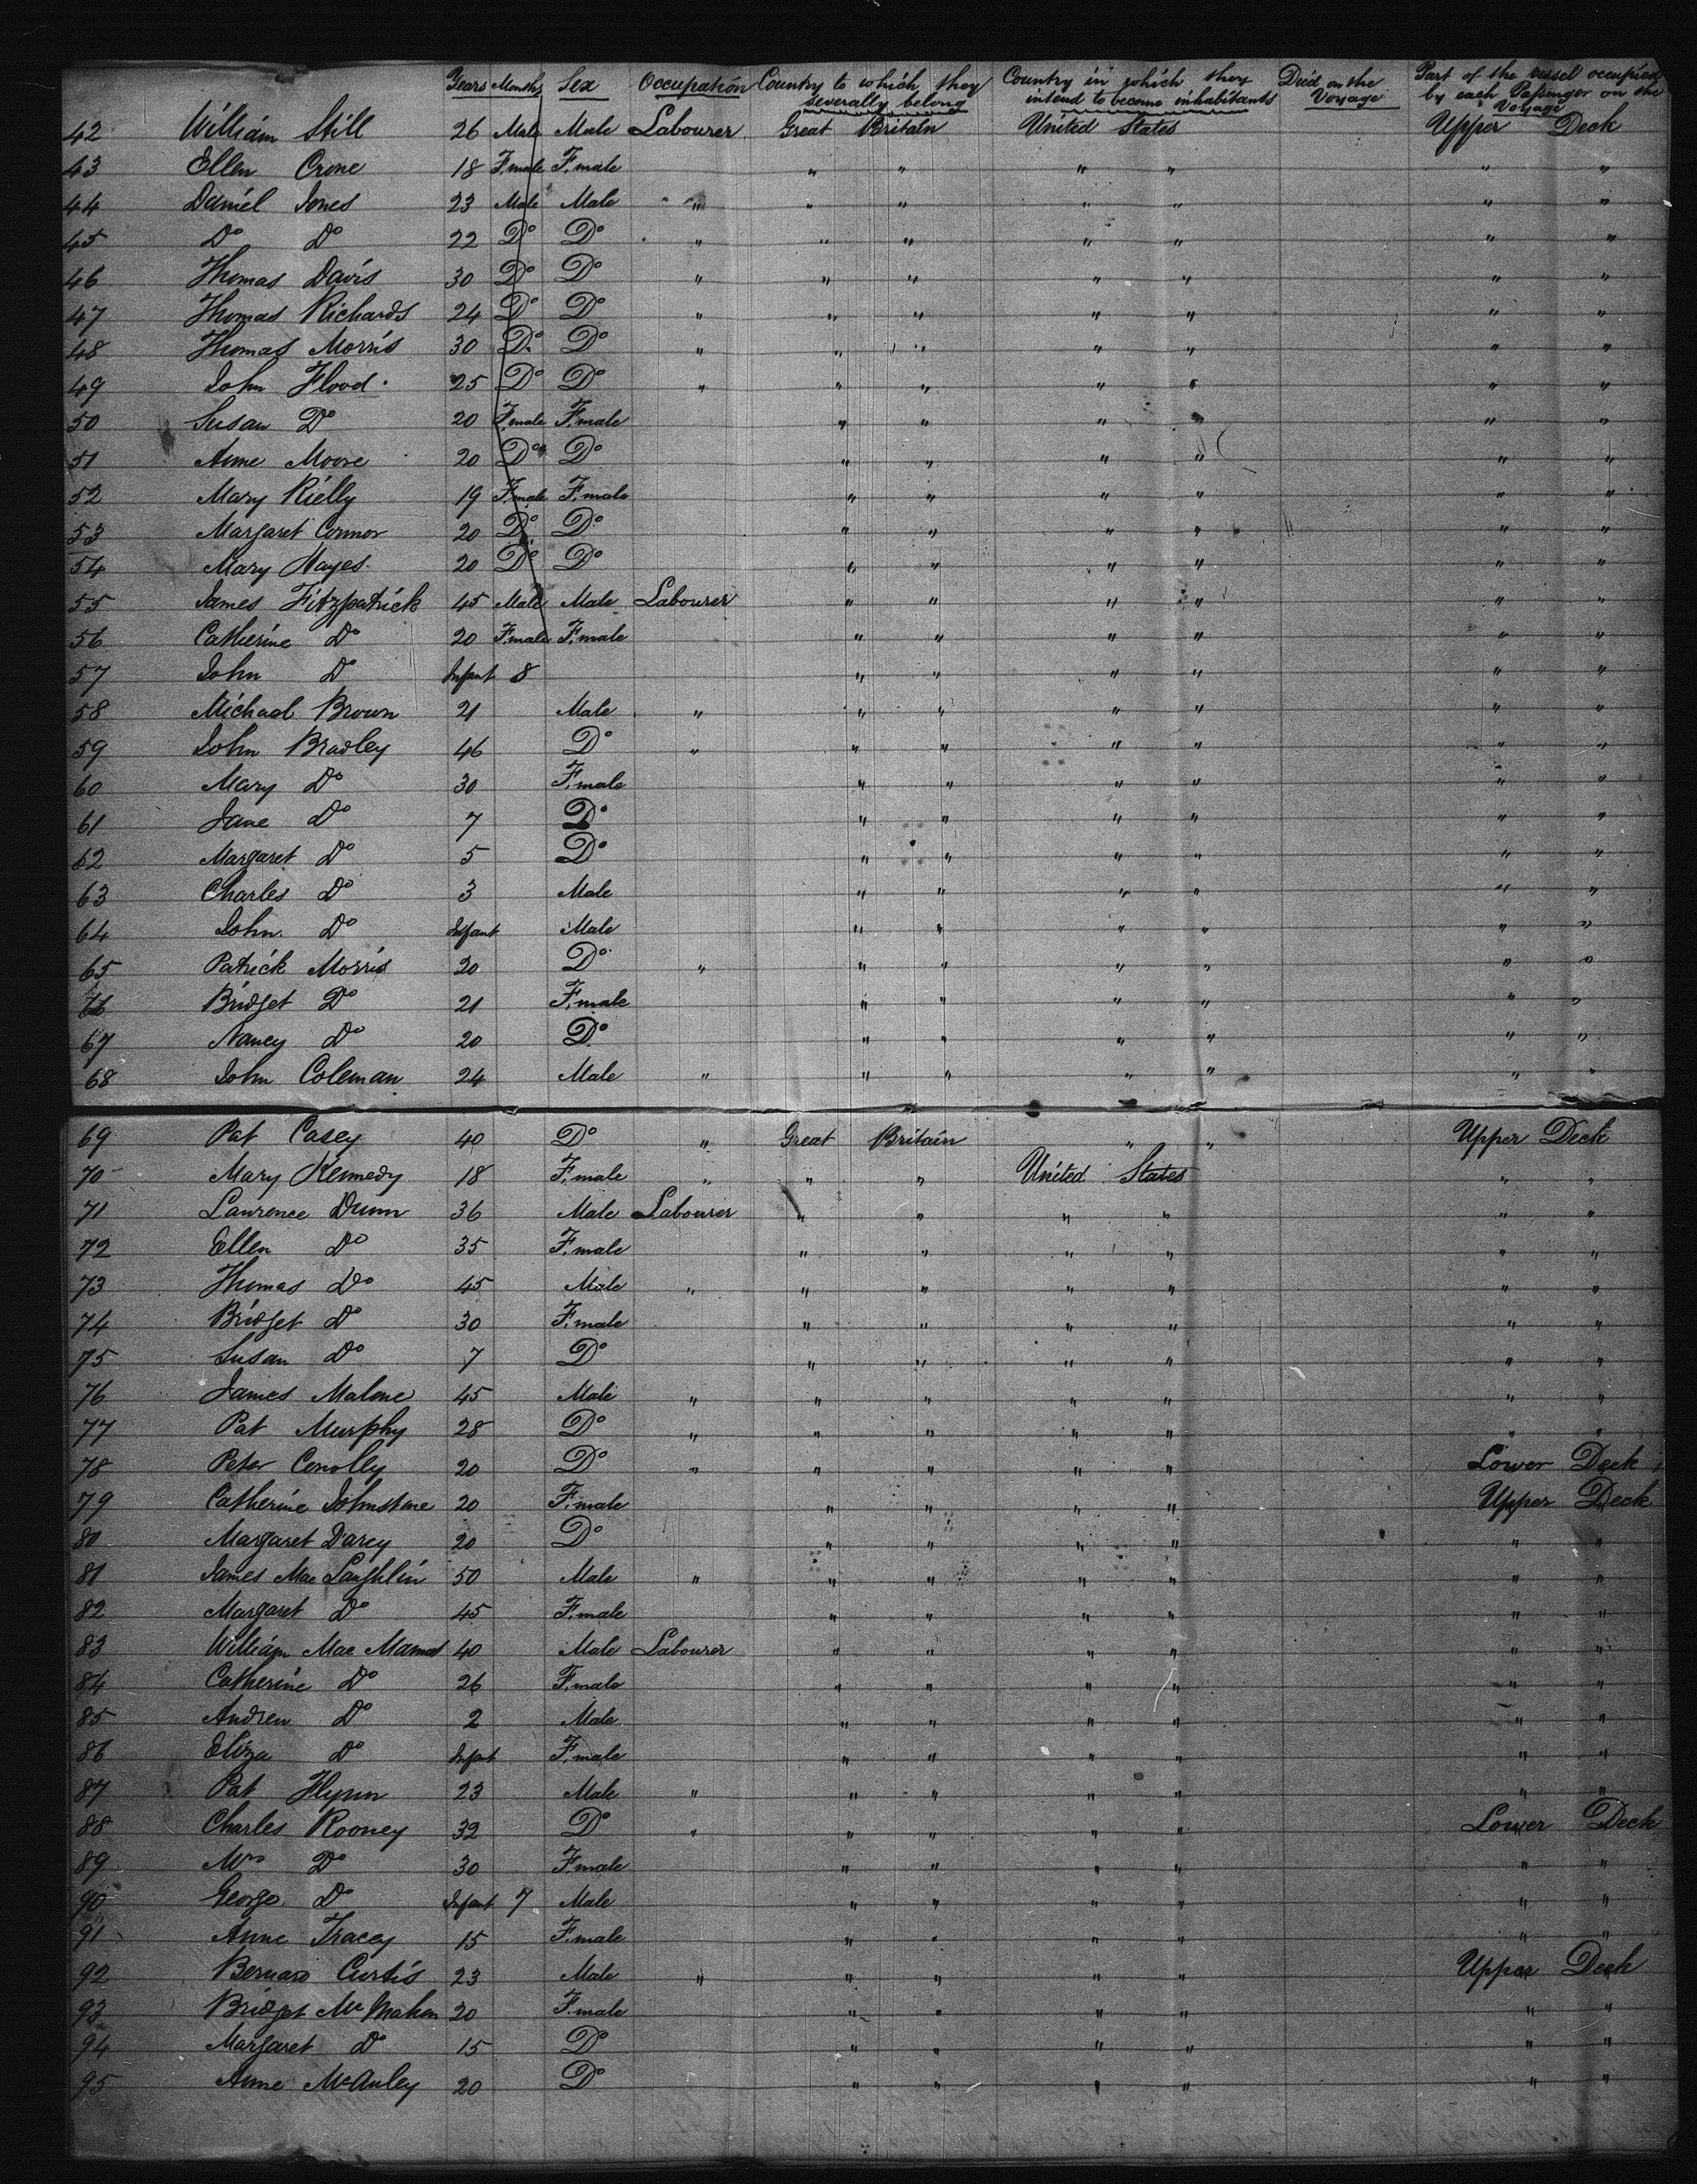 Years Months Sex Occupation Country to which they severally belong Country in which they intend to become inhabitants Died on the Voyage Part of the vessel occupied by each Passenger on the Voyage
42 William Still 26 Male Male Labourer Great Britain United States Upper Deck
43 Ellen Crone 18 F.male F.male " " " " " "
44 Daniel Jones 23 Male Male " " " " " " "
45 Do Do 22 Do Do " " " " " " "
46 Thomas Davis 30 Do Do " " " " " " "
47 Thomas Richards 24 Do Do " " " " " " "
48 Thomas Morris 30 Do Do " " " " " " "
49 John Flood 25 Do Do " " " " " " "
50 Susan Do 20 F.male F.male " " " " " "
51 Anne Moore 20 Do Do " " " " " "
52 Mary Rielly 19 F.male F.male " " " " " "
53 Margaret Connor 20 Do Do " " " " " "
54 Mary Hayes 20 Do Do " " " " " "
55 James Fitzpatrick 45 Male Male Labourer " " " " " "
56 Catherine Do 20 F.male F.male " " " " " "
57 John Do Infant 8 " " " " " "
58 Michael Brown 21 Male " " " " " " "
59 John Bradley 46 Do " " " " " " "
60 Mary Do 30 F.male " " " " " "
61 Jane Do 7 Do " " " " " "
62 Margaret Do 5 Do " " " " " "
63 Charles Do 3 Male " " " " " "
64 John Do Infant Male " " " " " "
65 Patrick Morris 20 Do " " " " " " "
66 Bridget Do 21 F.male " " " " " "
67 Nancy Do 20 Do " " " " " "
68 John Coleman 24 Male " " " " " " "
69 Pat Casey 40 Do " Great Britain " " Upper Deck
70 Mary Kennedy 18 F.male " " " United States " "
71 Laurence Dunn 36 Male Labourer " " " " " "
72 Ellen Do 35 F.male " " " " " "
73 Thomas Do 45 Male " " " " " " "
74 Bridget Do 30 F.male " " " " " "
75 Susan Do 7 Do " " " " " "
76 James Malone 45 Male " " " " " " "
77 Pat Murphy 28 Do " " " " " " "
78 Peter Conolly 20 Do " " " " " Lower Deck
79 Catherine Johnstone 20 F.male " " " " Upper Deck
80 Margaret Darcy 20 Do " " " " " "
81 James Mac Laughlin 50 Male " " " " " " "
82 Margaret Do 45 F.male " " " " " "
83 William Mac 40 Male Labourer " " " " " "
84 Catherine Do 26 F.male " " " " " "
85 Andrew Do 2 Male " " " " " "
86 Eliza Do Infant F.male " " " " " "
87 Pat Flynn 23 Male " " " " " " "
88 Charles Rooney 32 Do " " " " " Lower Deck
89 Mrs Do 30 F.male " " " " " "
90 George Do Infant 7 Male " " " " " "
91 Anne Tracey 15 F.male " " " " " "
92 Bernard Curtis 23 Male " " " " " Upper Deck
93 Bridget Mc Mahon 20 F.male " " " " " "
94 Margaret Do 15 Do " " " " " "
95 Anne McAuley 20 Do " " " " " "